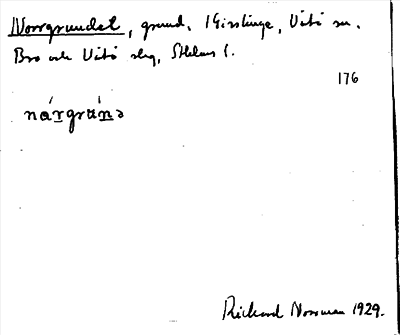 Norrgrundet, grund, Gisslinge, Vätö sn.
Bro och Vätö slg, Sthlms l.
176
nårgrunə
Rickard Norrman 1929.